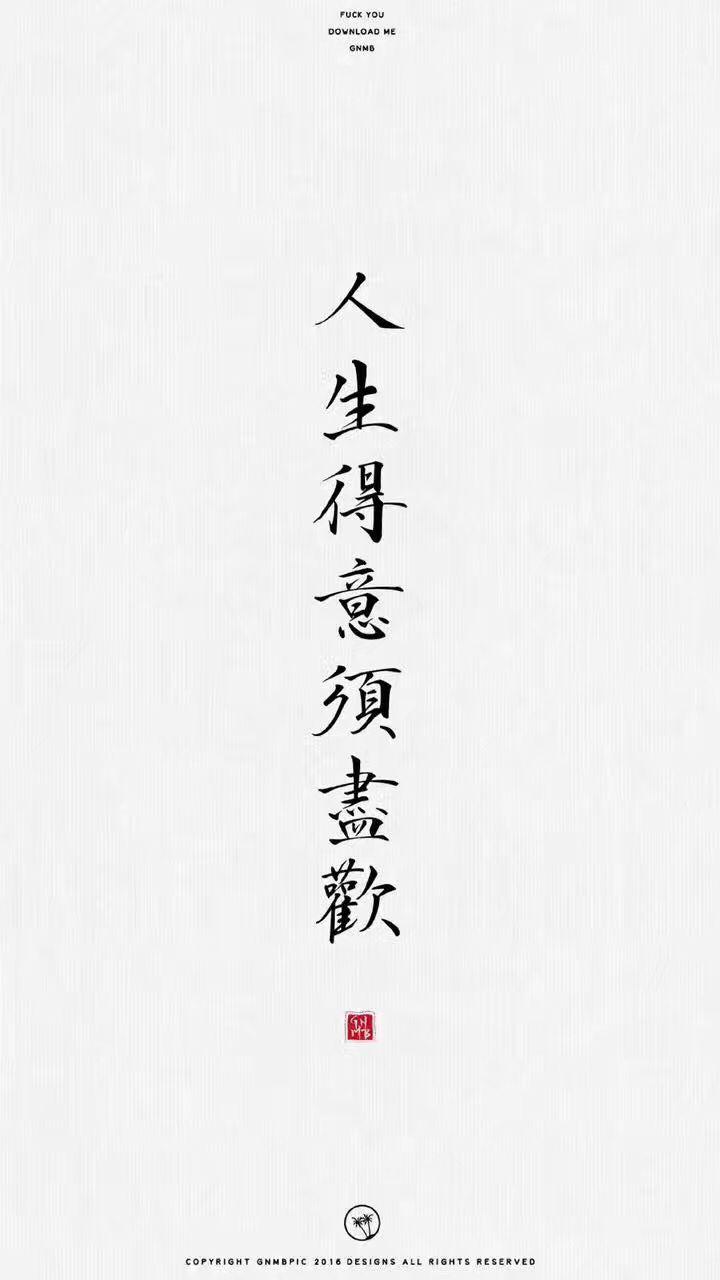 FUCK YOU
DOWNLOAD ME
GNMB
人生得意須盡歡
GN
MB
COPYRIGHT GNMBPIC 2016 DESIGNS ALL RIGHTS RESERVED